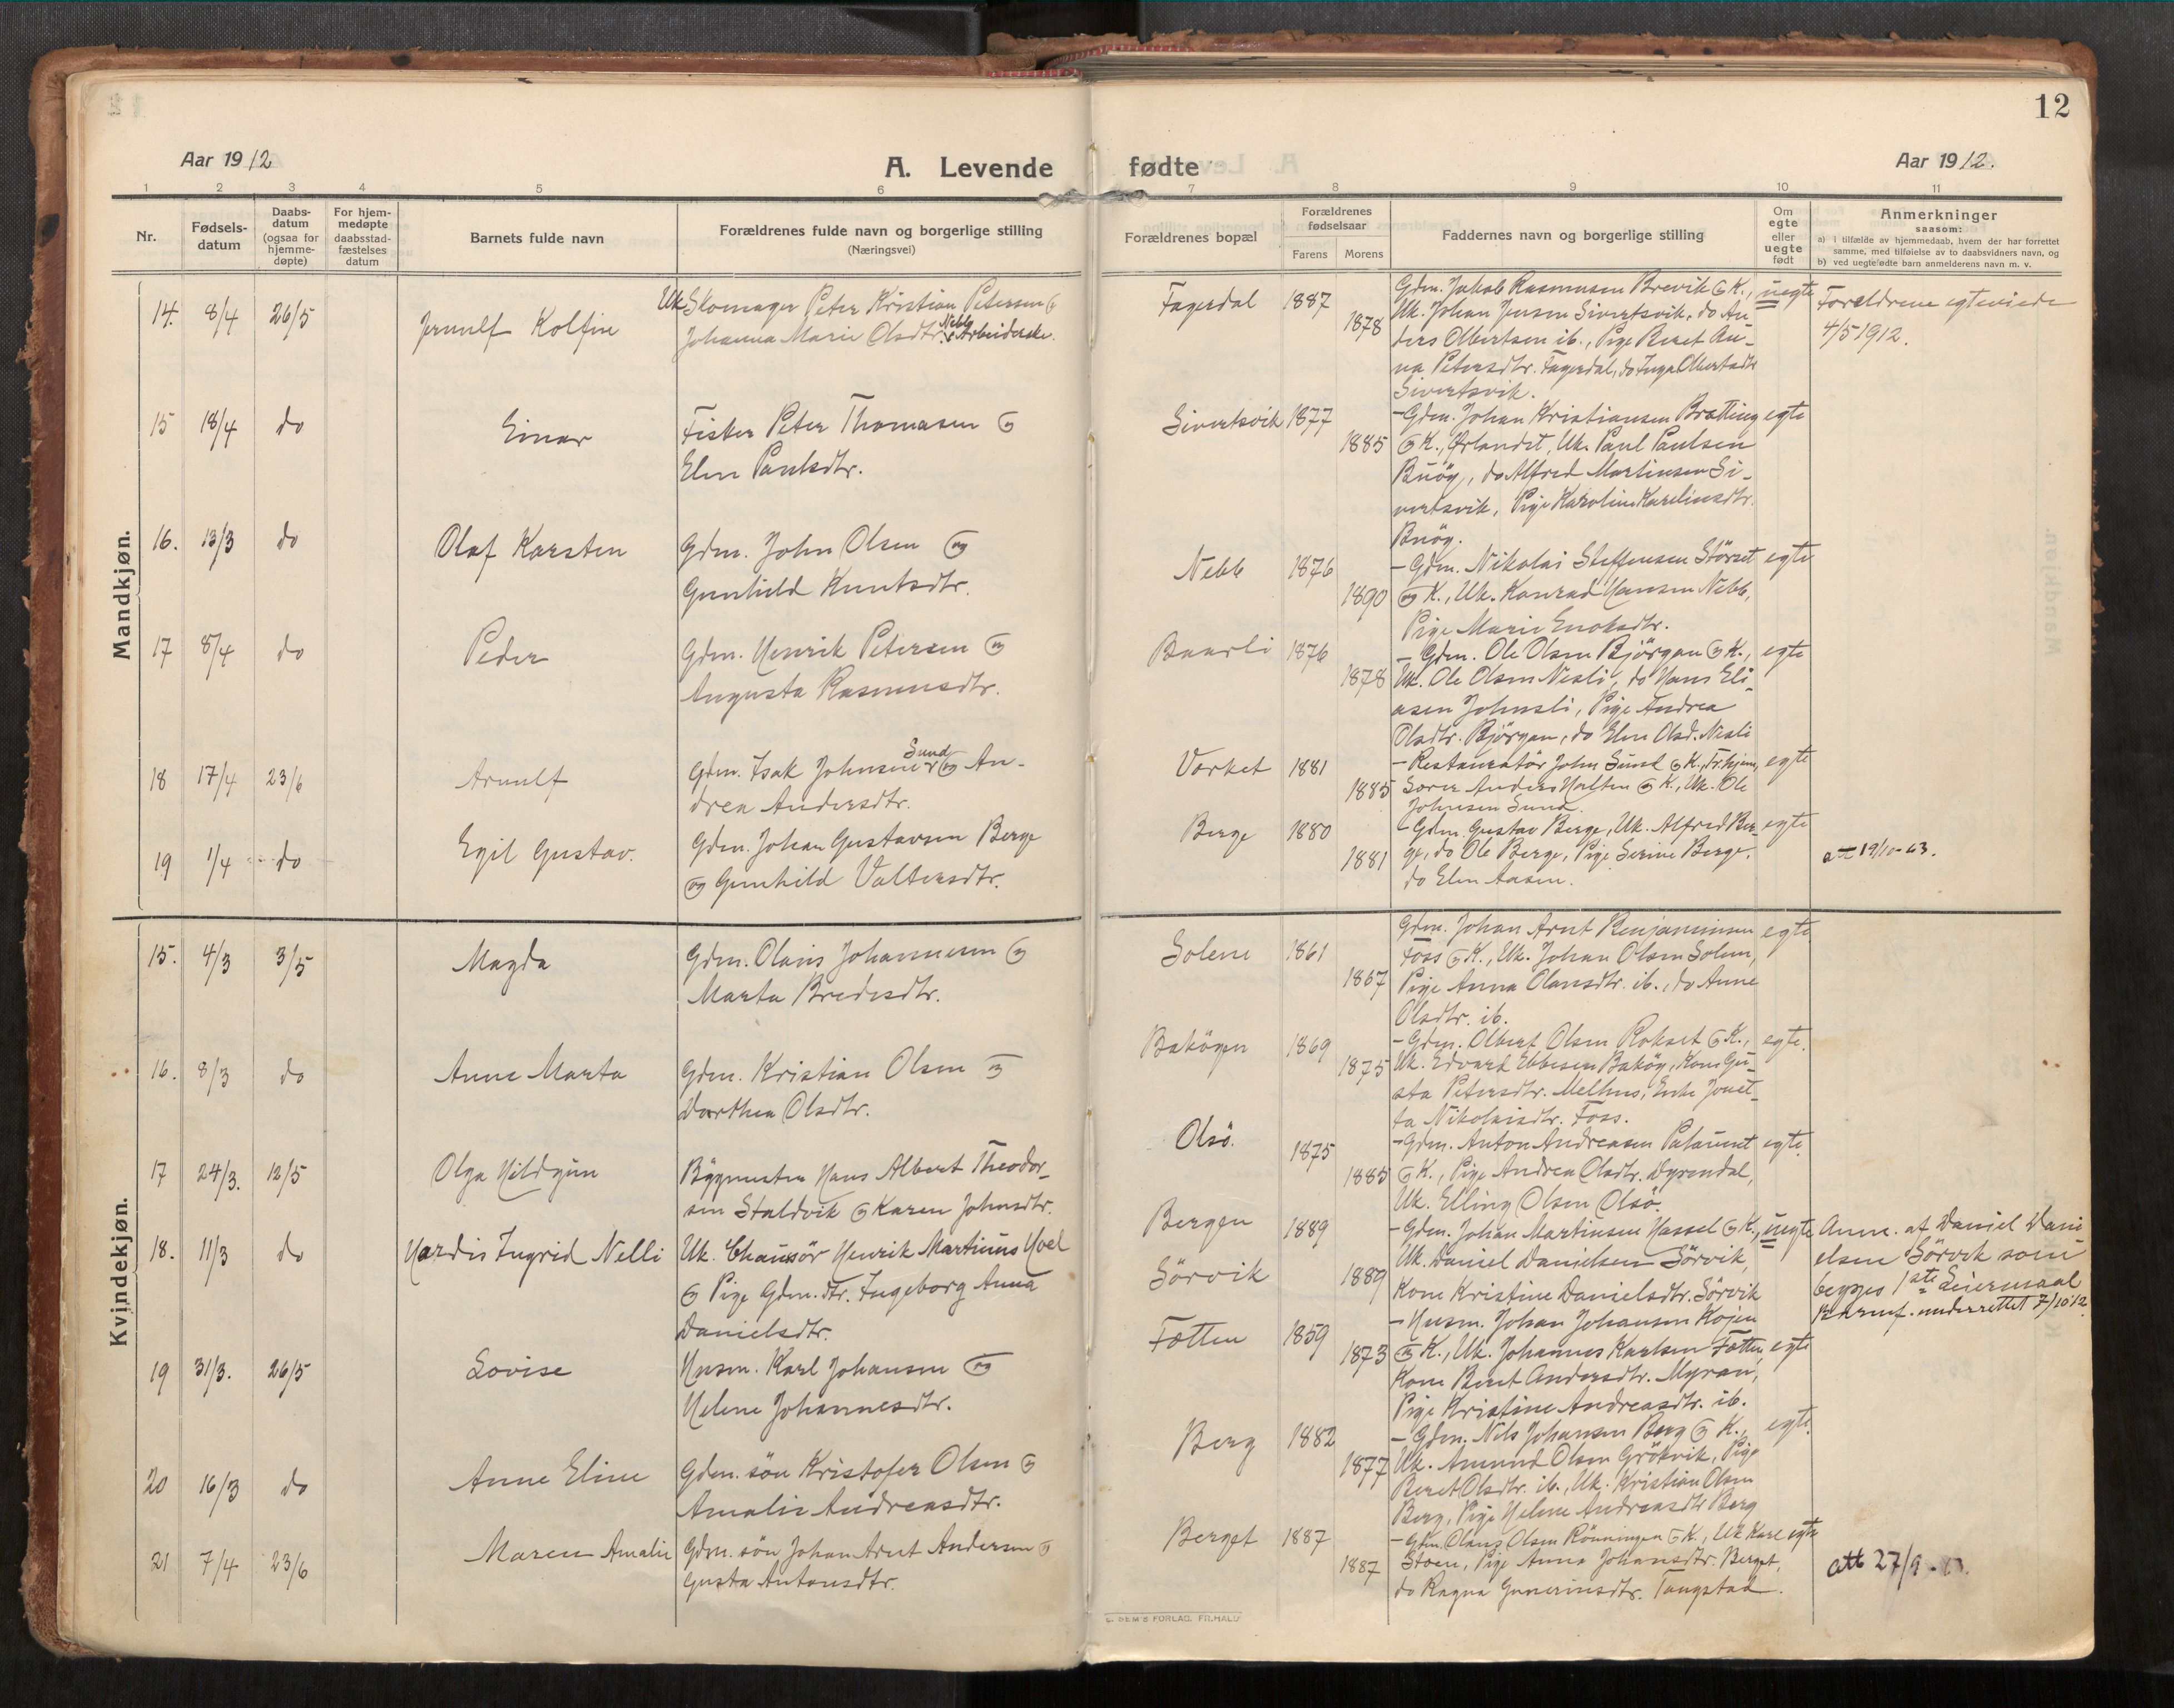 12
Aar 1912
A. Levende fødte
Aar 1912.
1 2 3 4 5 6 7 8 9 10 11
Nr.
Fødsels-
datum
Daabs-
datum
(ogsaa for
hjemme-
døpte)
For hjem-
medøpte
daabsstad-
fæstelses
datum
Barnets fulde navn
Forældrenes fulde navn og borgerlige stilling
(Næringsvei)
Forældrenes bopæl
Forældrenes
fødselsaar
Farens Morens
Faddernes navn og borgerlige stilling
Om
egte
eller
uegte
født
Anmerkninger
saasom:
a) i tilfælde av hjemmedaab, hvem der har forrettet
samme, med tilføielse av to daabsvidners navn, og
b) ved uegtefødte barn anmelderens navn m. v.
Mandkjøn.
14. 8/4 26/5
Jernulf Kolfin
Uk. Skomager Peter Kristian Petersen og
Johanna Marie Olsdtr. Nebb, Arbeiderske.
Fagerdal 1887
1878
Gdm. Jakob Rasmusen Brevik og K.,
Uk. Johan Jensen Sivertsvik, do An-
ders Olbertsen ib., Pige Beret An-
na Petersdtr. Fagerdal, do Inga Olbertsdtr
Sivertsvik.
uegte
Forældrene egteviede
4/5 1912.
15 18/4 do
Einar
Fisker Peter Thomasen og
Elen Paulsdtr.
Sivertsvik 1877
1885
- Gdm. Johan Kristiansen Bratting
og K., Ørlandet, Uk. Paul Paulsen
Buöy, do Alfred Martinsen Si-
vertsvik, Pige Karoline Karelinsdtr.
Buöy.
egte
16. 13/3 do
Olaf Karsten
Gdm. John Olsen og
Gunhild Knutsdtr.
Nebb 1876
1890
- Gdm. Nikolai Steffensen Störset
og K., Uk. Konrad Hansen Nebb,
Pige Marie Enoksdtr.
egte
17 8/4 do
Peder
Gdm. Henrik Petersen og
Augusta Rasmusdtr.
Baarli 1876
1878
- Gdm. Ole Olsen Björgan og K.,
Uk. Ole Olsen Nesli, do Hans Eli-
asen Johnsli, Pige Andrea
Olsdtr. Björgan, do Elen Olsd. Nesli
egte
18 17/4 23/6
Arnulf
Gdm. Isak Johnsen Sund og An-
drea Andersdtr.
Værket 1881
1885
- Restauratör John Sund og K., Tr.hjem,
Anders Halten og K., Uk. Ole
Johnsen Sund.
egte
19 1/4 do
Egil Gustav.
Gdm. Johan Gustavsen Berge
og Gunhild Valtersdtr.
Berge 1880
1881
- Gdm. Gustav Berge, Uk. Alfred Ber-
ge, do Ole Berge, Pige Serine Berge,
do Elen Aasen.
egte
att 19/10-63.
Kvindekjøn.
15. 4/3 3/5
Magda
Gdm. Olaus Johannesen og
Marta Bredesdtr.
Solem 1861
1867
Gdm. Johan Arnt Benjaminsen
Foss og K., Uk. Johan Olsen Solem,
Pige Anna Olausdtr. ib., do Anne
Olsdtr. ib.
egte.
16. 8/3 do
Anne Marta
Gdm. Kristian Olsen og
Dorthea Olsdtr.
Baköyen 1869
1875
- Gdm. Olbert Olsen Rokset og K.,
Uk. Edvard Ebbesen Baköy, Kone Gu-
sta Petersdtr. Melhus, Enke Jonet-
ta Nikolaisdtr. Foss.
egte.
17 24/3. 12/5
Olga Hildgun
Bygmester Hans Albert Theodor-
sen Staldvik og Karen Johnsdtr.
Olsö. 1875
1885
- Gdm. Anton Andreasen
og K., Pige Andrea Olsdtr. Dyrendal,
Uk. Elling Olsen Olsö.
egte.
18. 11/3 do
Hardis Ingrid Nelli
Uk. Chaufför Henrik Martinus Hoel
og Pige Gdm. dtr. Ingeborg Anna
Danielsdtr.
Bergen 1889
Sörvik 1889
- Gdm. Johan Martinsen Hassel og K.,
Uk. Daniel Danielsen Sörvik,
Kone Kristine Danielsdtr. Sörvik
uegte
Anm. af Daniel Dani
elsen Sörvik som
begges 1ste Leiermaal
underrettet 7/10 12.
19 31/3. 26/5
Lovise
Husm. Karl Johansen og
Helene Johannesdtr.
Fætten 1859
1873
- Husm. Johan Johansen Kojen
og K., Uk. Johannes Karlsen Fætten,
Kone Beret Andersdtr. Myran,
Pige Kristine Andreasdtr. ib.
egte
20 16/3 do
Anne Eline
Gdm. sön Kristofer Olsen og
Amalie Andreasdtr.
Berg 1882
1877
- Gdm. Nils Johansen Berg og K.,
Uk. Amund Olsen Grökvik, Pige
Beret Olsdtr. ib., Uk. Kristian Olsen
Berg, Pige Helene Andreasdtr Berg
egte.
21 7/4 23/6
Maren Amalie
Gdm. sön Johan Arnt Andersen og
Gusta Antonsdtr.
Berget 1887
1887
- Gdm. Olaus Olsen Rönningen og K., Uk Karl
Støen, Pige Anna Johansdtr. Berget,
do Ragna Gunerinsdtr. Tangstad.
egte
att 27/9 -
E. SEM'S FORLAG, FR.HALD